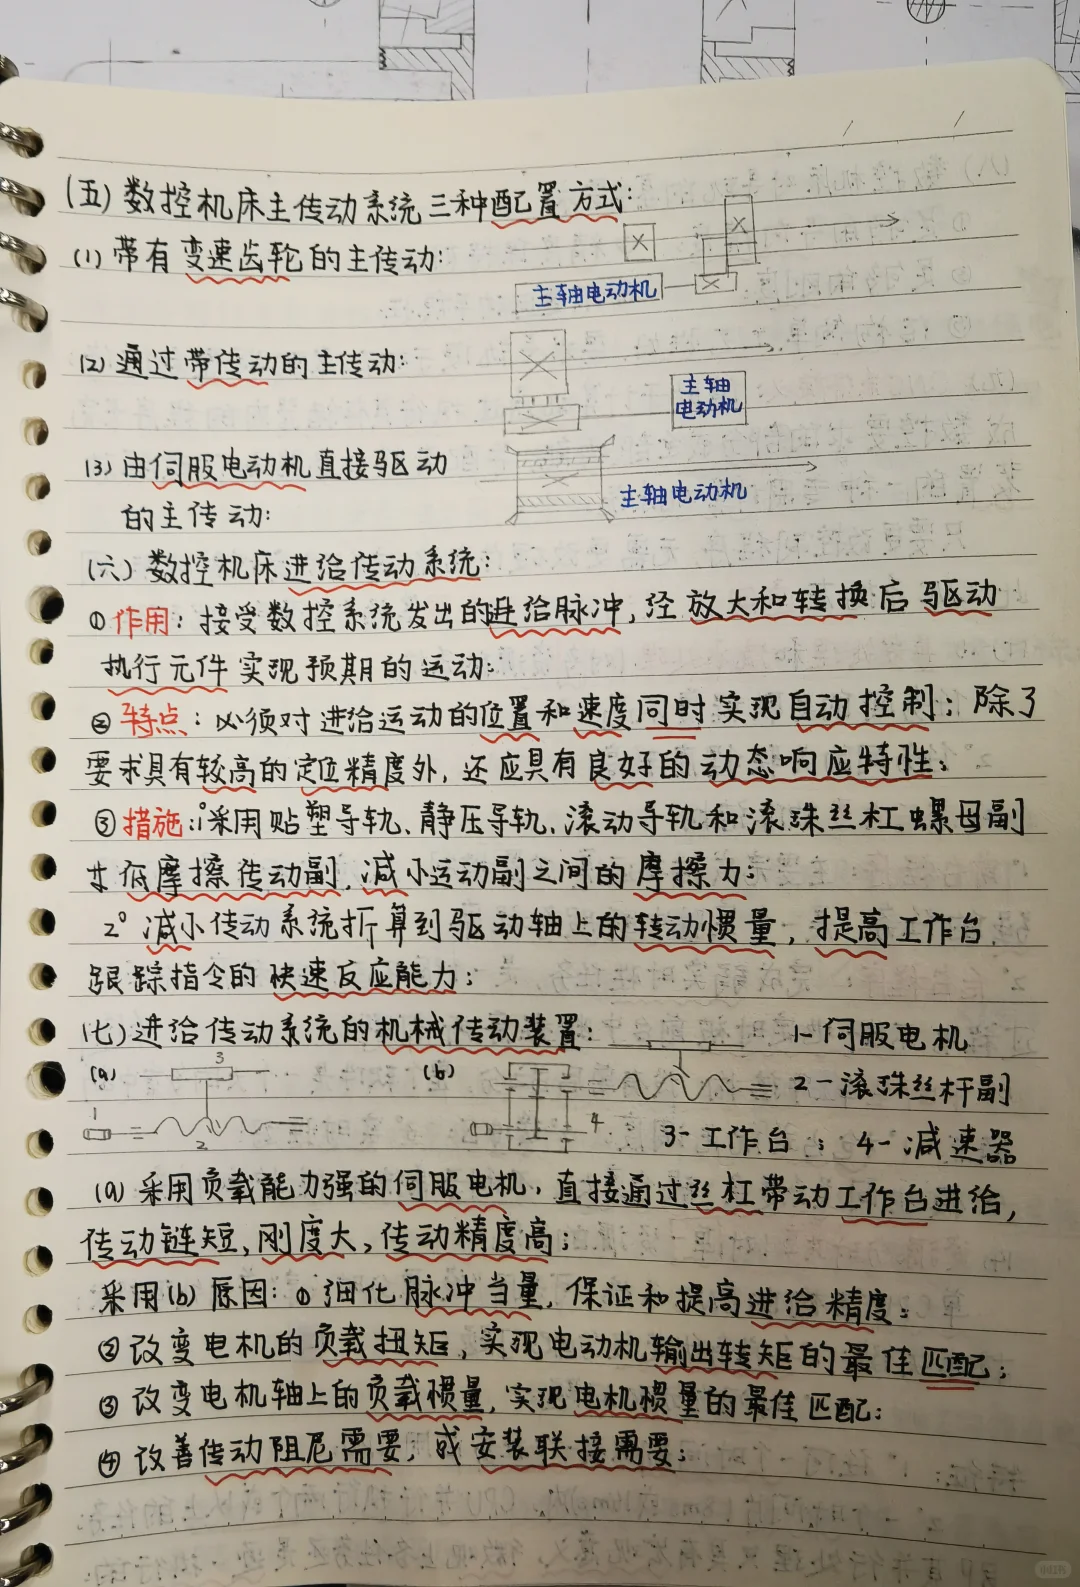 (五)数控机床主传动系统三种配置方式:
(1)带有变速齿轮的主传动:
主轴电动机
(2)通过带传动的主传动:
主轴
电动机
(3)由伺服电动机直接驱动
的主传动:
主轴电动机
(六)数控机床进给传动系统:
①作用:接受数控系统发出的进给脉冲,经放大和转换后驱动
执行元件实现预期的运动;
②特点:必须对进给运动的位置和速度同时实现自动控制;除了
要求具有较高的定位精度外,还应具有良好的动态响应特性;
③措施:1°采用贴塑导轨、静压导轨、滚动导轨和滚珠丝杠螺母副
低摩擦传动副,减小运动副之间的摩擦力;
2°减小传动系统折算到驱动轴上的转动惯量,提高工作台
跟踪指令的快速反应能力;
(七)进给传动系统的机械传动装置:
1-伺服电机
(a) 3 (b)
2-滚珠丝杆副
1 2 4
3-工作台; 4-减速器
(a)采用负载能力强的伺服电机,直接通过丝杠带动工作台进给,
传动链短,刚度大,传动精度高;
采用(b)原因:①细化脉冲当量,保证和提高进给精度;
②改变电机的负载扭矩,实现电动机输出转矩的最佳匹配;
③改变电机轴上的负载惯量,实现电机惯量的最佳匹配;
④改善传动阻尼需要,或安装联接需要;
小红书